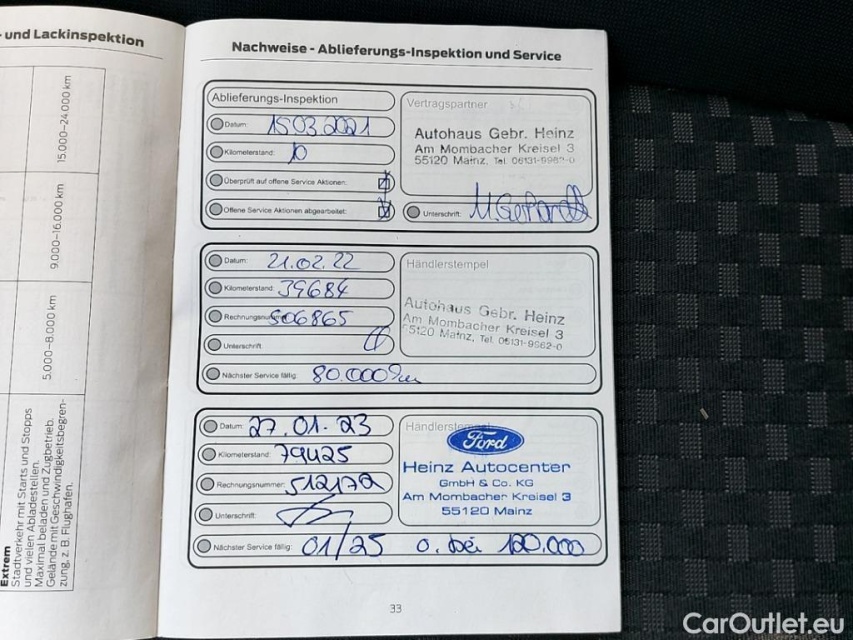 - und Lackinspektion
15.000–24.000 km
9.000–16.000 km
5.000–8.000 km
Extrem
Stadtverkehr mit Starts und Stopps
und vielen Abladestellen.
Maximal beladen und Zugbetrieb.
Gelände mit Geschwindigkeitsbegren-
zung, z. B. Flughäfen.
Nachweise - Ablieferungs-Inspektion und Service
Ablieferungs-Inspektion
Datum: 15.03.2021
Kilometerstand: 10
Überprüft auf offene Service Aktionen:
Offene Service Aktionen abgearbeitet:
Vertragspartner
Autohaus Gebr. Heinz
Am Mombacher Kreisel 3
55120 Mainz, Tel. 06131-9962-0
Unterschrift:
Datum: 21.02.22
Kilometerstand: 39684
Rechnungsnummer: 506865
Unterschrift
Nächster Service fällig: 80.000 km
Händlerstempel
Autohaus Gebr. Heinz
Am Mombacher Kreisel 3
55120 Mainz, Tel. 06131-9962-0
Datum: 27.01.23
Kilometerstand: 79425
Rechnungsnummer: 512172
Unterschrift:
Nächster Service fällig: 01/25 o. bei 120.000
Händlerstempel
Ford
Heinz Autocenter
GmbH & Co. KG
Am Mombacher Kreisel 3
55120 Mainz
33
CarOutlet.eu